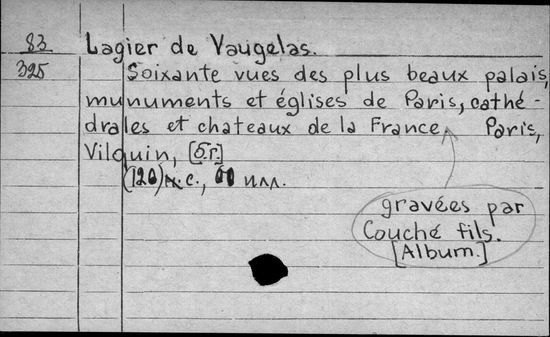 83
325
Lagier de Vaugelas.
Soixante vues des plus beaux palais,
munuments et églises de Paris, cathé-
drales et chateaux de la France. Paris,
Vilquin, [б.г.]
(120) с., 60 илл.
gravées par
Couché fils.
[Album.]